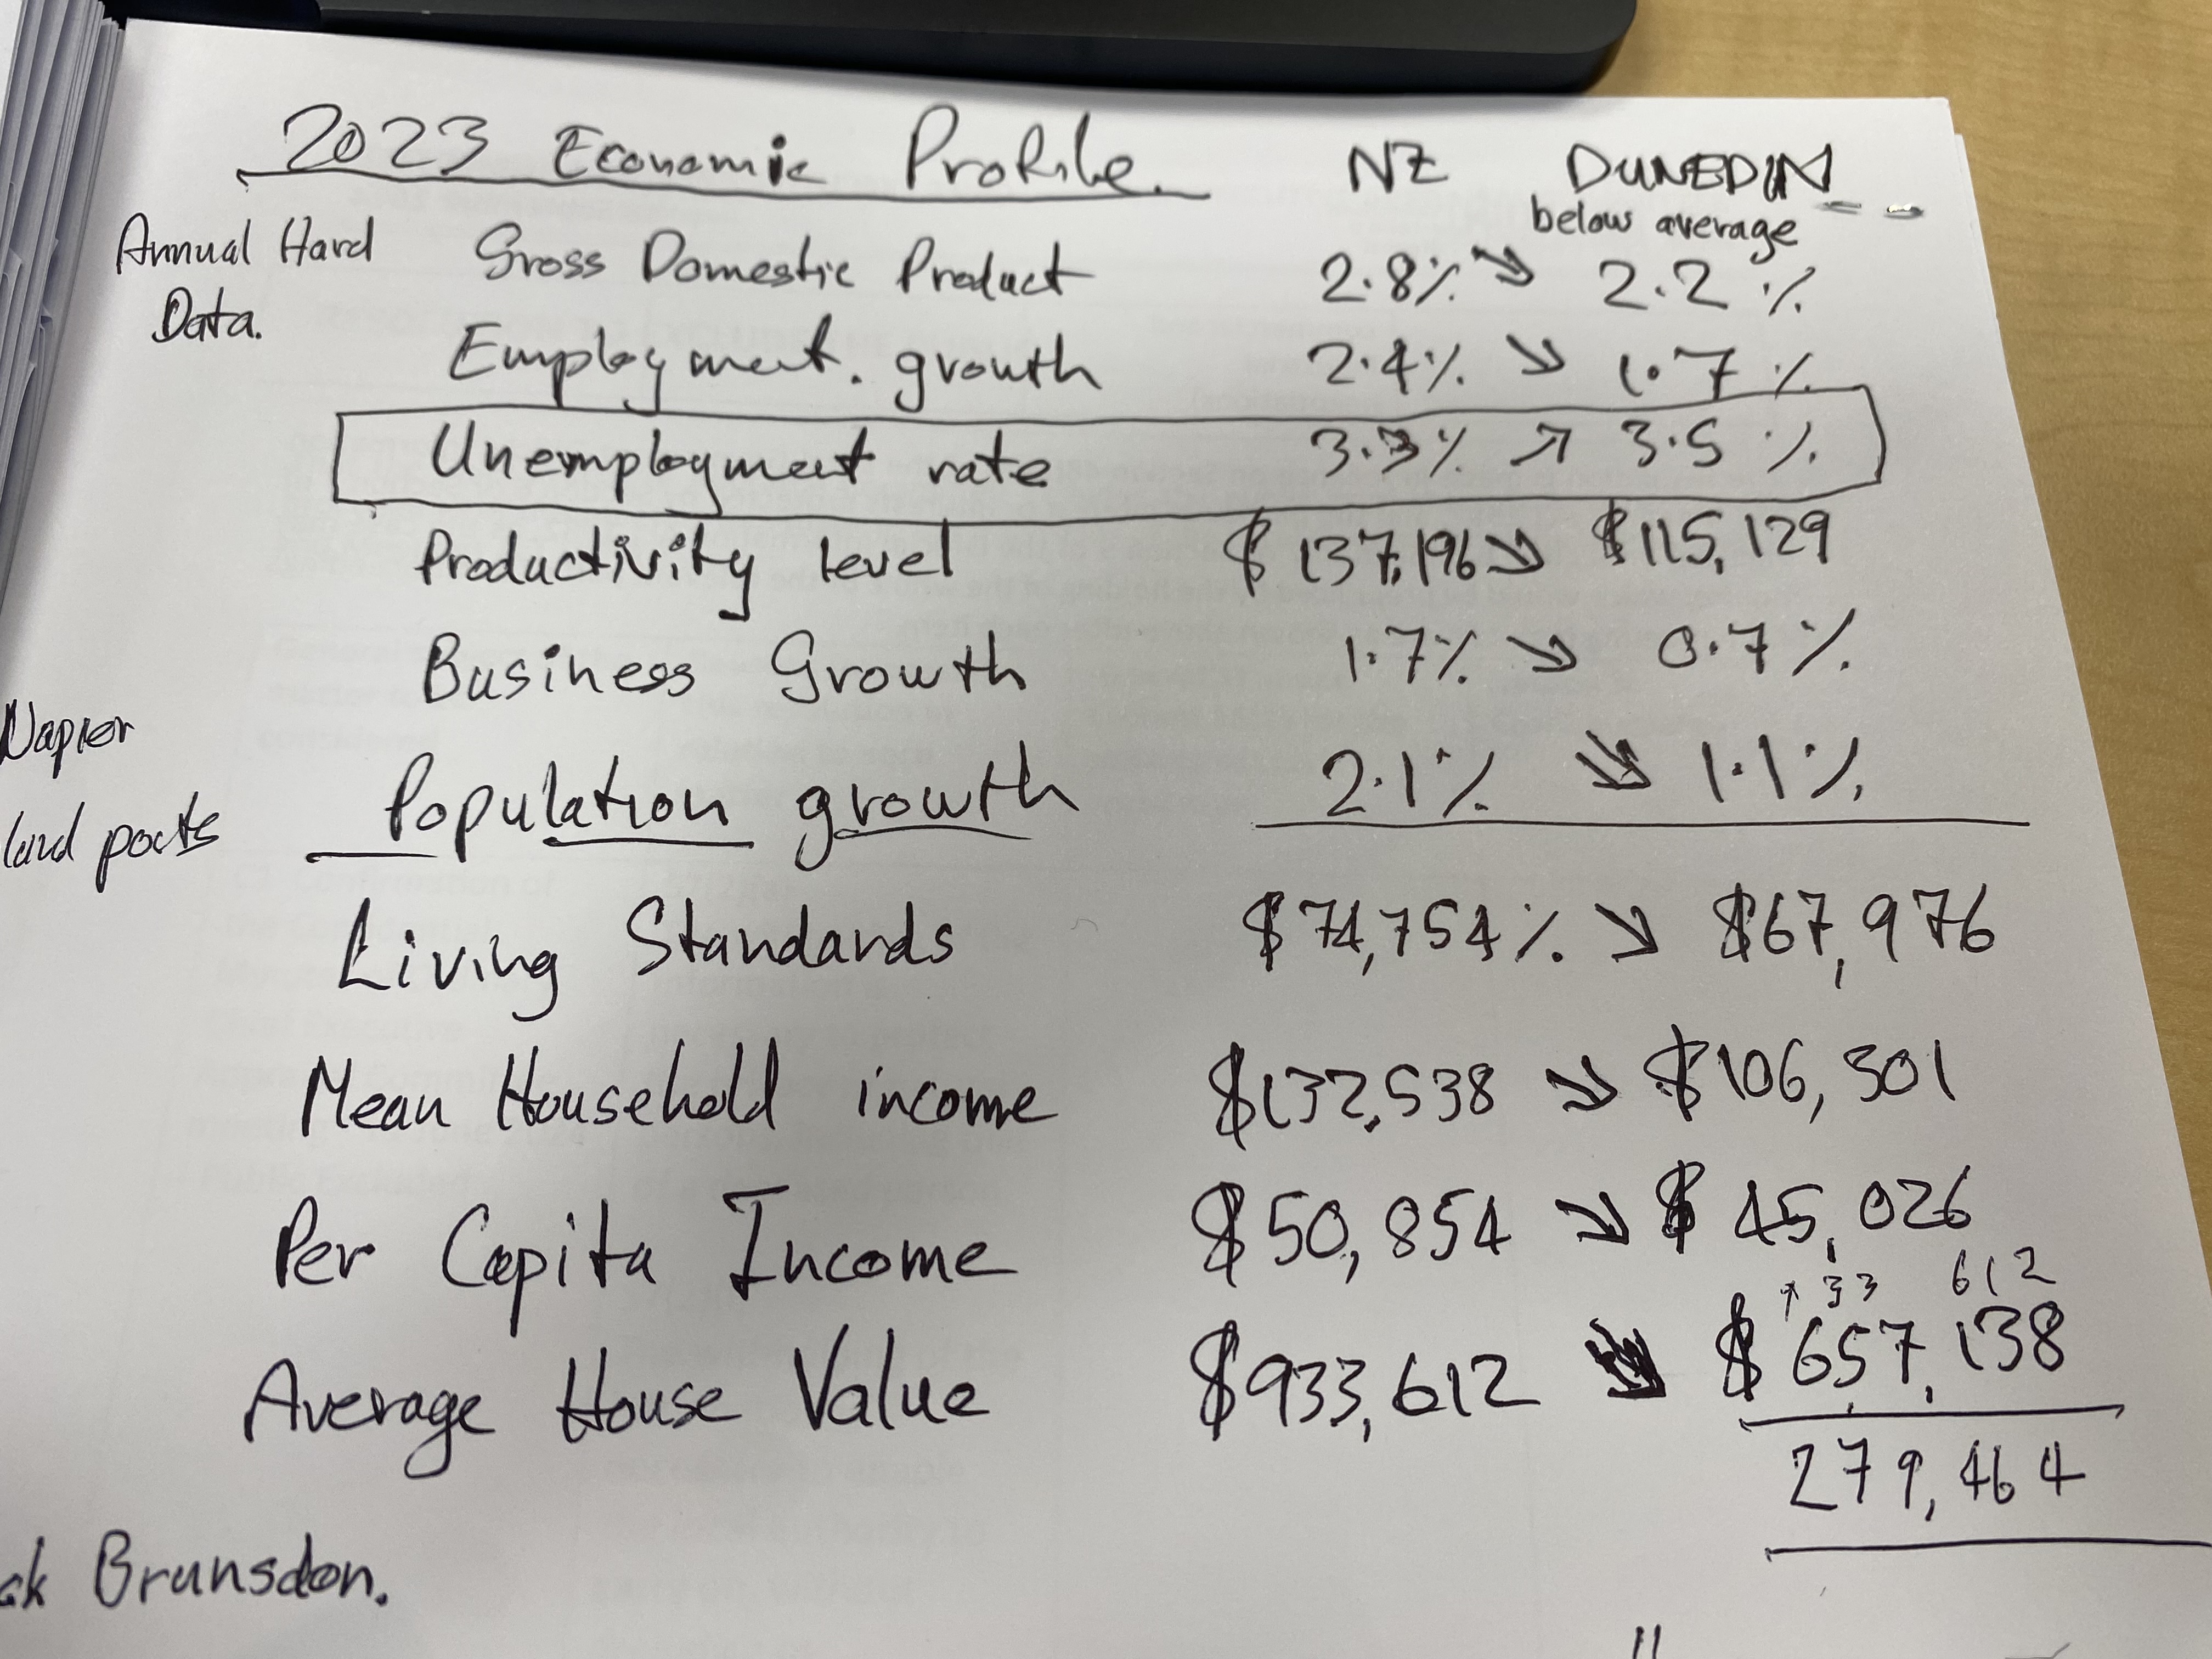 2023 Economic Profile. NZ DUNEDIN
below average
Annual Hard Data.
Gross Domestic Product 2.8% ↘ 2.2 %
Employment. growth 2.4% ↘ 1.7 %
Unemployment rate 3.3% ↗ 3.5 %
Productivity level $137,196 ↘ $115,129
Business Growth 1.7% ↘ 0.7%
Napier
Population growth 2.1% ↘ 1.1%
Living Standards $74,754% ↘ $67,976
Mean Household income $132,538 ↘ $106,301
Per Capita Income $50,854 ↘ $45,026
612
Average House Value $933,612 ↘ $657,138
279,464
Brunsdon.